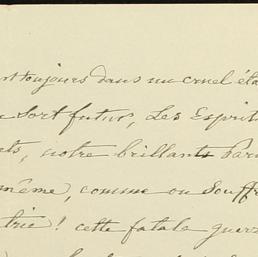 toujours dans un cruel éta
sort futur, Les Esprit
ts, notre brillants Par
même, comme on souffr
trie! cette fatale guerr